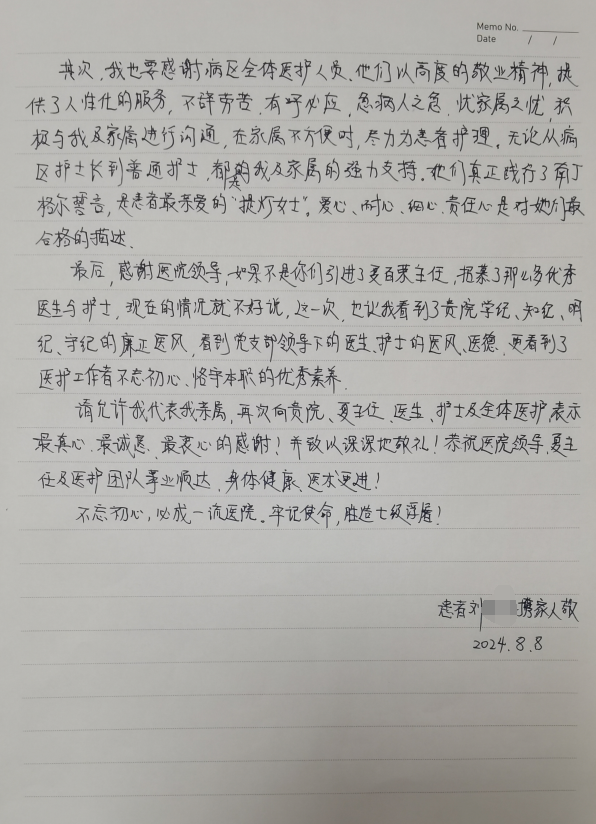 Memo No.
Date / /
其次,我也要感谢病区全体医护人员.他们以高度的敬业精神,提
供了人性化的服务,不辞劳苦.有呼必应,急病人之急.忧家属之忧,积
极与我及家属进行沟通,在家属不方便时,尽力为患者护理。无论从病
区护士长到普通护士,都是我及家属的强力支持。她们真正践行了南丁
格尔誓言,是患者最亲爱的“提灯女士”。爱心、耐心、细心、责任心是对她们最
合格的描述.
最后,感谢医院领导,如果不是你们引进了夏百荣主任,招募了那么多优秀
医生与护士,现在的情况就不好说,这一次,也让我看到了贵院学纪、知纪、明
纪、守纪的廉正医风,看到党支部领导下的医生、护士的医风、医德,更看到了
医护工作者不忘初心、恪守本职的优秀素养.
请允许我代表我亲属,再次向贵院、夏主任、医生、护士及全体医护表示
最真心、最诚恳、最衷心的感谢!并致以深深地敬礼!恭祝医院领导、夏主
任及医护团队事业顺达、身体健康、医术更进!
不忘初心,必成一流医院。牢记使命,胜造七级浮屠!
患者刘 携家人敬
2024.8.8